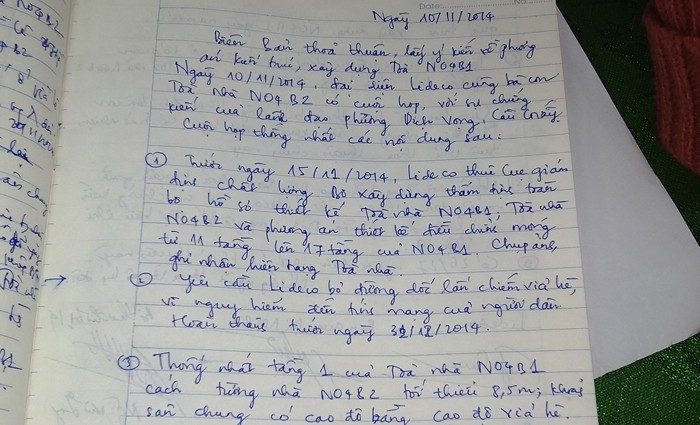 Ngày 10/11/2014
Biên Bản thoả thuận, lấy ý kiến về phương
án kiến trúc, xây dựng Toà NO4B1
Ngày 10/11/2014. Đại diện Lideco cùng bà con
Toà nhà NO4B2 có cuộc họp, với sự chứng
kiến của lãnh đạo phường Dịch Vọng, Cầu Giấy.
Cuộc họp thống nhất các nội dung sau:
① Trước ngày 15/12/2014, Lideco thuê Cục giám
định chất lượng Bộ xây dựng thẩm định toàn
bộ hồ sơ thiết kế Toà nhà NO4B1; Toà nhà
NO4B2 và phương án thiết kế điều chỉnh móng
từ 11 tầng lên 17 tầng của NO4B1. Chụp ảnh,
ghi nhận hiện trạng Toà nhà.
② Yêu cầu Lideco bỏ đường dốc lấn chiếm vỉa hè,
vì nguy hiểm đến tính mạng của người dân.
Hoàn thành trước ngày /12/2014.
③ Thống nhất tầng 1 của Toà nhà NO4B1
cách tường nhà NO4B2 tối thiểu 8,5m; khoảng
sân chung có cao độ bằng cao độ vỉa hè.